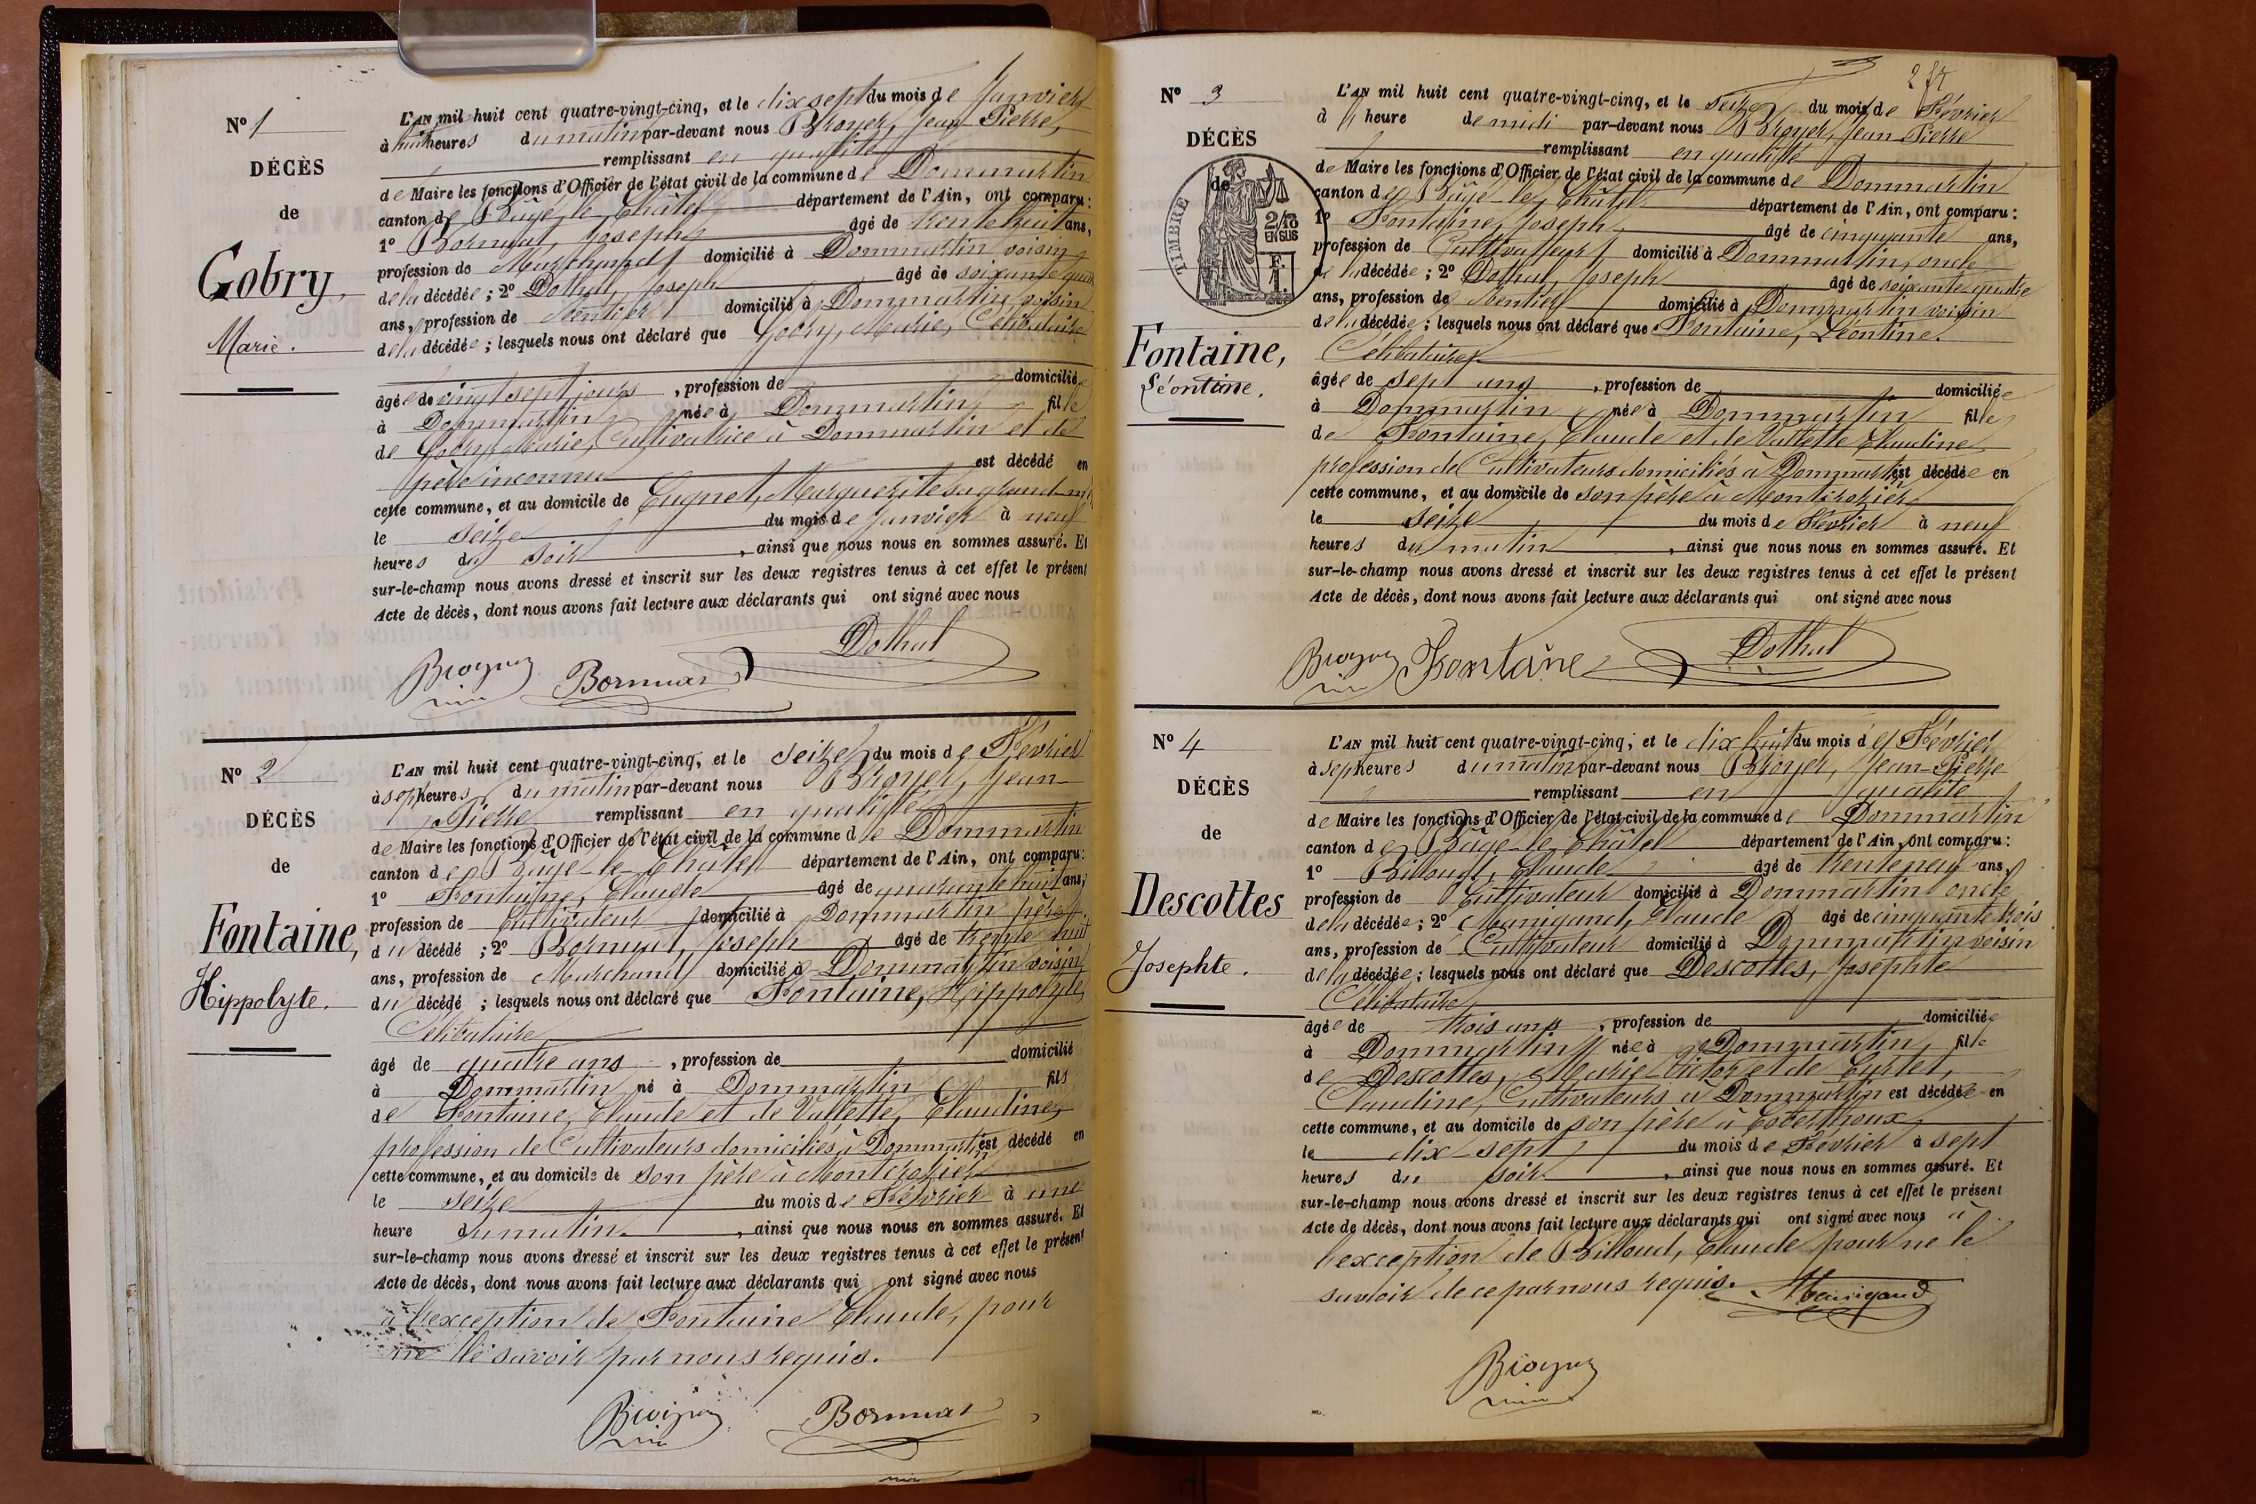 N° 1
DÉCÈS
de
Gobry,
Marie.
L'AN mil huit cent quatre-vingt-cinq, et le dix sept du mois de Janvier
à huit heures du matin par-devant nous Broyer, Jean Pierre,
remplissant en qualité
de Maire les fonctions d'Officier de l'état civil de la commune de Dommartin
canton de Bâgé-le-Châtel département de l'Ain, ont comparu:
1° Bornuat, Joseph âgé de trente huit ans,
profession de Marchand domicilié à Dommartin voisin
de la décédée; 2° Dothal, Joseph âgé de soixante quatre
ans, profession de Rentier domicilié à Dommartin voisin
de la décédée; lesquels nous ont déclaré que Gobry, Marie, Célibataire
âgée de vingt sept jours, profession de domiciliée
à Dommartin née à Dommartin fille
de Gobry Marie, Cultivatrice à Dommartin et de
père inconnu est décédé en
cette commune, et au domicile de Cugnet, Marguerite sa grand-mère
le seize du mois de Janvier à neuf
heures du soir, ainsi que nous nous en sommes assuré. Et
sur-le-champ nous avons dressé et inscrit sur les deux registres tenus à cet effet le présent
Acte de décès, dont nous avons fait lecture aux déclarants qui ont signé avec nous
Dothal
Broyer Bornuat
N° 2
DÉCÈS
de
Fontaine,
Hippolyte.
L'AN mil huit cent quatre-vingt-cinq, et le seize du mois de Février
à sept heures du matin par-devant nous Broyer, Jean-
Pierre remplissant en qualité
de Maire les fonctions d'Officier de l'état civil de la commune de Dommartin
canton de Bâgé-le-Châtel département de l'Ain, ont comparu:
1° Fontaine, Claude âgé de quarante huit ans,
profession de Cultivateur domicilié à Dommartin père
du décédé; 2° Bornuat, Joseph âgé de trente huit
ans, profession de Marchand domicilié à Dommartin voisin
du décédé; lesquels nous ont déclaré que Fontaine, Hippolyte
Célibataire
âgé de quatre ans, profession de domicilié
à Dommartin né à Dommartin fils
de Fontaine, Claude et de Vallette, Claudine,
profession de Cultivateurs domiciliés à Dommartin est décédé en
cette commune, et au domicile de son père à Montcrozier
le seize du mois de Février à une
heure du matin, ainsi que nous nous en sommes assuré. Et
sur-le-champ nous avons dressé et inscrit sur les deux registres tenus à cet effet le présent
Acte de décès, dont nous avons fait lecture aux déclarants qui ont signé avec nous
à l'exception de Fontaine Claude, pour
ne le savoir par nous requis.
Broyer Bornuat
N° 3
DÉCÈS
de
TIMBRE
2/10
EN SUS
Fontaine,
Léontine.
L'AN mil huit cent quatre-vingt-cinq, et le seize du mois de Février
à heure de midi par-devant nous Broyer, Jean-Pierre
remplissant en qualité
de Maire les fonctions d'Officier de l'état civil de la commune de Dommartin
canton de Bâgé-le-Châtel département de l'Ain, ont comparu:
1° Fontaine, Joseph âgé de cinquante ans,
profession de Cultivateur domicilié à Dommartin, oncle
de la décédée; 2° Dothal, Joseph âgé de soixante quatre
ans, profession de Rentier domicilié à Dommartin voisin
de la décédée; lesquels nous ont déclaré que Fontaine, Léontine.
Célibataire
âgée de sept ans, profession de domiciliée
à Dommartin née à Dommartin fille
de Fontaine, Claude et de Vallette Claudine
profession de Cultivateurs domiciliés à Dommartin est décédée en
cette commune, et au domicile de son père à Montcrozier
le seize du mois de Février à neuf
heures du matin, ainsi que nous nous en sommes assuré. Et
sur-le-champ nous avons dressé et inscrit sur les deux registres tenus à cet effet le présent
Acte de décès, dont nous avons fait lecture aux déclarants qui ont signé avec nous
Broyer Fontaine Dothal
N° 4
DÉCÈS
de
Descottes
Josephte.
L'AN mil huit cent quatre-vingt-cinq, et le dix huit du mois de Février
à sept heures du matin par-devant nous Broyer, Jean-Pierre
remplissant en qualité
de Maire les fonctions d'Officier de l'état civil de la commune de Dommartin
canton de Bâgé-le-Châtel département de l'Ain, ont comparu:
1° Billoud, Claude âgé de trente neuf ans,
profession de Cultivateur domicilié à Dommartin oncle
de la décédée; 2° Manigand, Claude âgé de cinquante trois
ans, profession de Cultivateur domicilié à Dommartin voisin
de la décédée; lesquels nous ont déclaré que Descottes, Josephte
Célibataire
âgée de trois ans, profession de domiciliée
à Dommartin née à Dommartin fille
de Descottes, Marie-Victor et de Curtet,
Claudine, Cultivateurs à Dommartin est décédée en
cette commune, et au domicile de son père à
le dix-sept du mois de Février à sept
heures du soir, ainsi que nous nous en sommes assuré. Et
sur-le-champ nous avons dressé et inscrit sur les deux registres tenus à cet effet le présent
Acte de décès, dont nous avons fait lecture aux déclarants qui ont signé avec nous à
l'exception de Billoud, Claude pour ne le
savoir de ce par nous requis. Manigand
Broyer